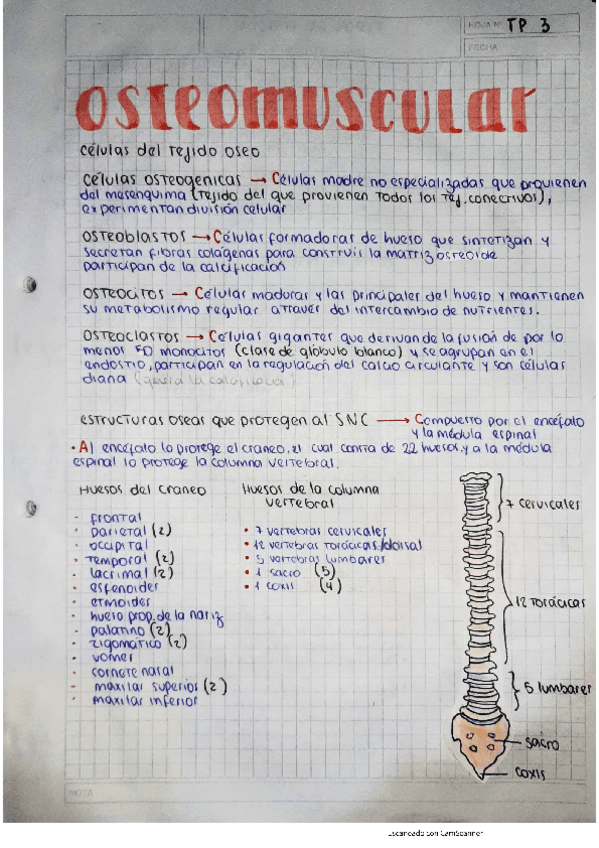 HOJA N° TP 3
FECHA
osteomuscular
células del Tejido oseo
células osteogenicas → Células madre no especializadas que provienen
del mesenquima (Tejido del que provienen todos los Tej. conectivos),
experimentan división celular
osteoblastos → Células formadoras de hueso que sintetizan y
secretan fibras colágenas para construir la matriz osteoide
participan de la calcificación
osteocitos → Células maduras y las principales del hueso y mantienen
su metabolismo regular atraver del intercambio de nutrientes.
osteoclastos → Células gigantes que derivan de la fusión de por lo
menos 50 monocitos (clase de glóbulo blanco) y se agrupan en el
endostio, participan en la regulación del calcio circulante y son células
diana
estructuras osear que protegen al SNC → Compuesto por el encéfalo
y la médula espinal
• Al encéfalo lo protege el craneo, el cual consta de 22 huesos, y a la médula
espinal lo protege la columna vertebral.
Huesos del craneo
- frontal
- parietal (2)
- occipital
- temporal (2)
- lacrimal (2)
- esfenoides
- etmoides
- hueso prop. de la nariz
- palatino (2)
- zigomático (2)
- vomer
- cornete nasal
- maxilar superior (2)
- maxilar inferior
Huesos de la columna
vertebral
• 7 vertebras cervicales
• 12 vertebras Torácicas/dorsal
• 5 vertebras lumbares
• 1 sacro (5)
• 1 coxis (4)
7 cervicales
12 Torácicas
5 lumbares
sacro
coxis
NOTA
Escaneado con CamScanner